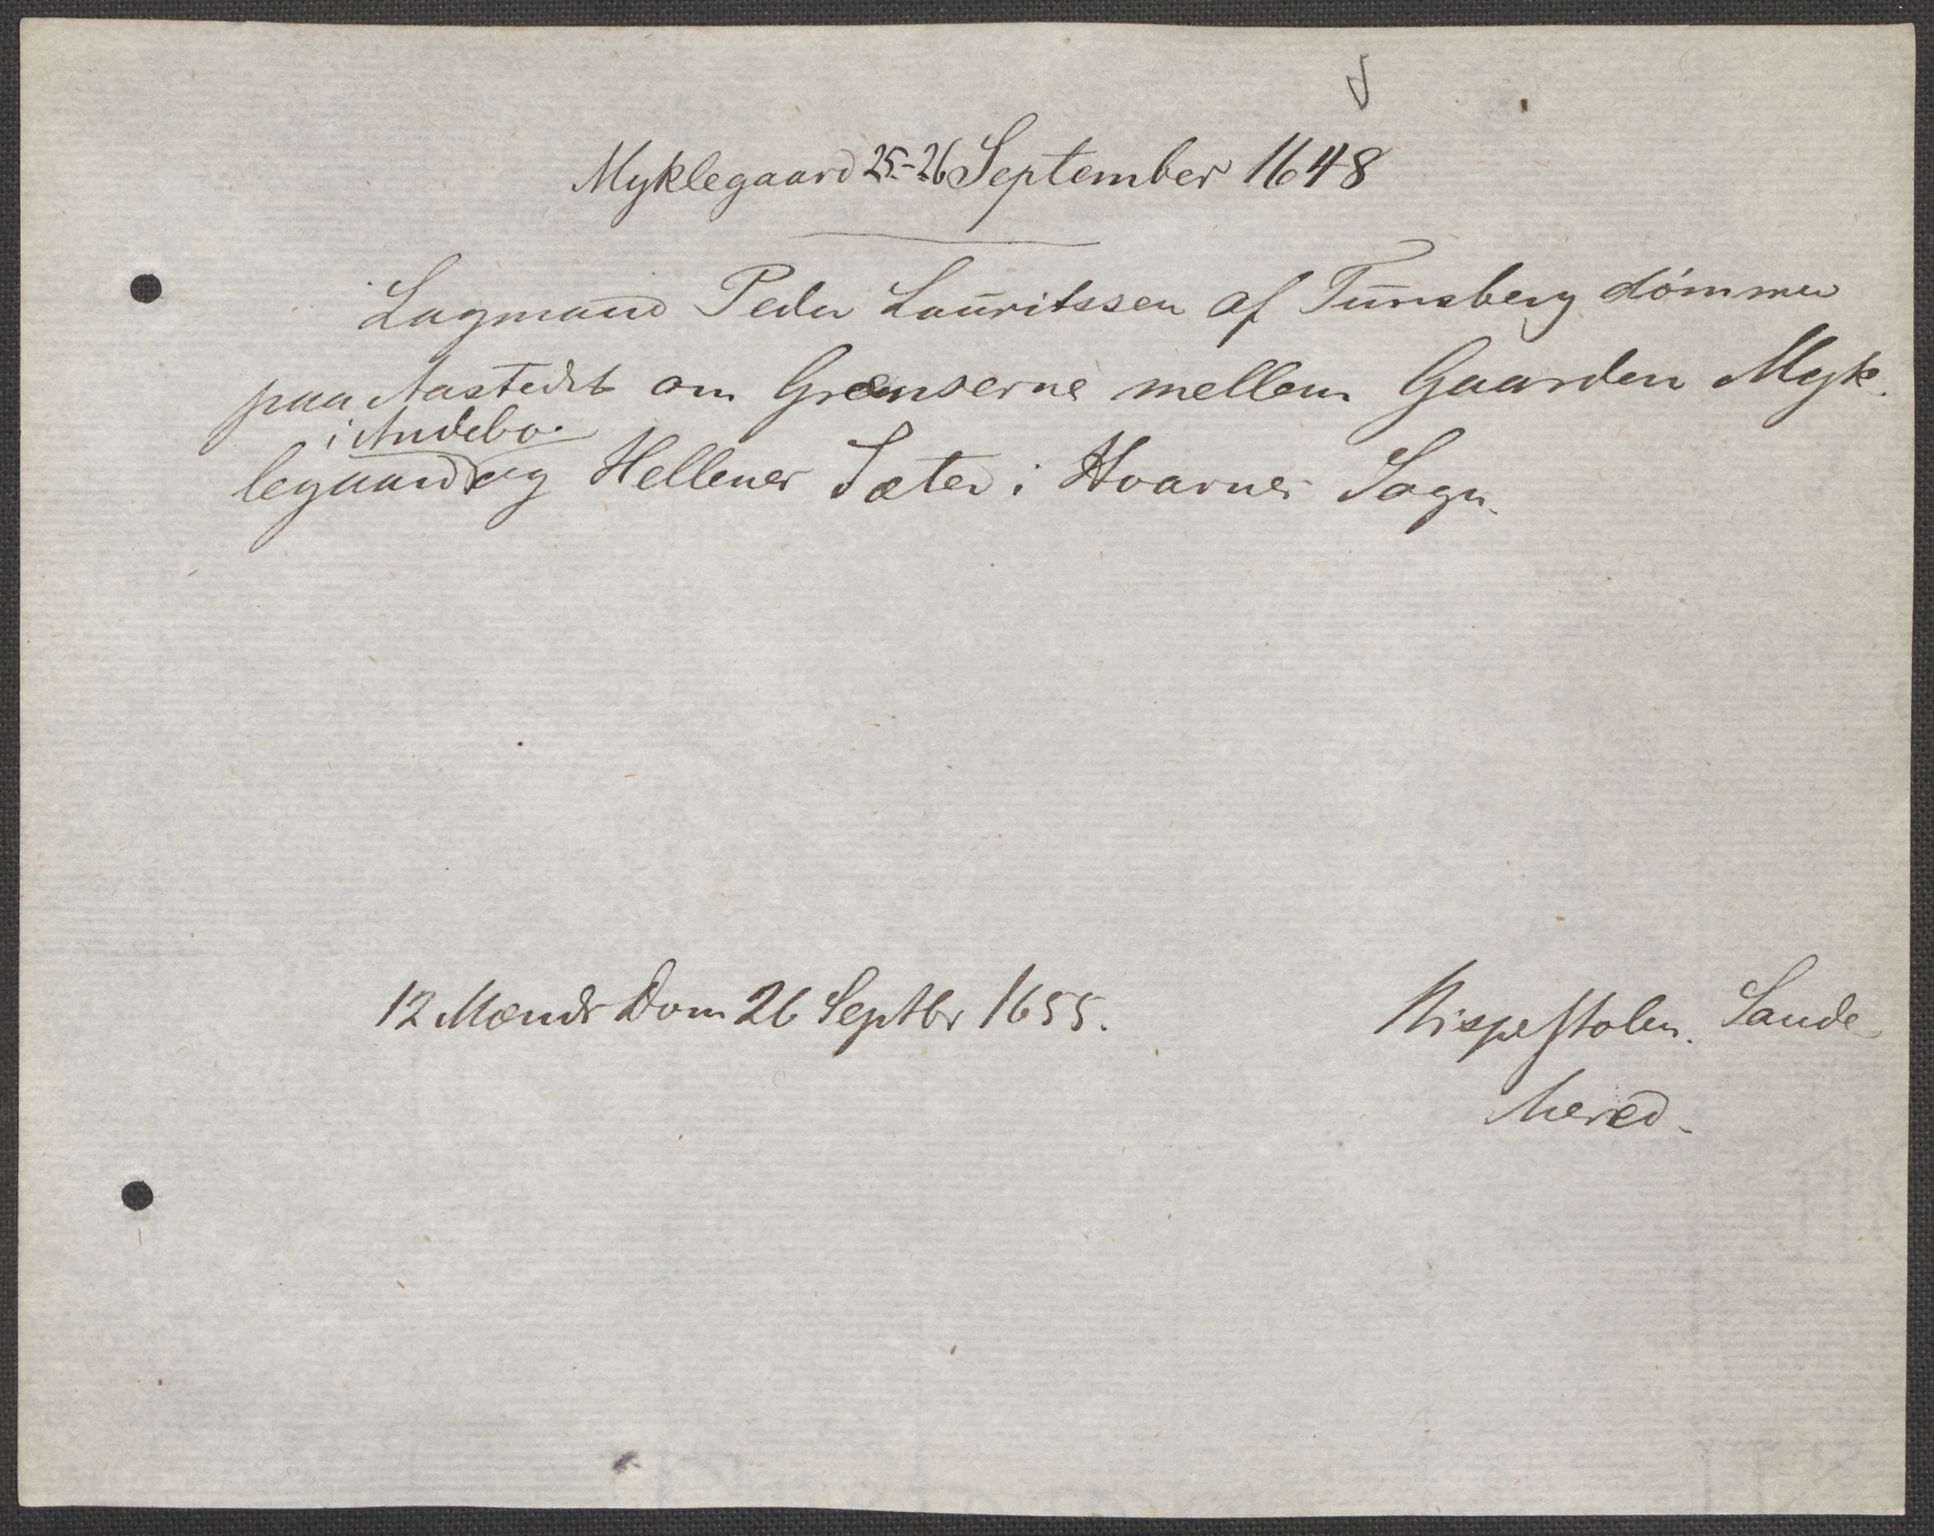 Myklegaard 25.-26 September 1648
Lagmand Peder Lauritssen af Tunsberg dømmer
paa Aastedet om Grænserne mellem Gaarden Myk-
i Andebo
legaard og Hellenes Sæter i Hvarnes Sogn.
12 Mænds Dom 26 Septbr 1655.
Rispestolen. Sande
herred.